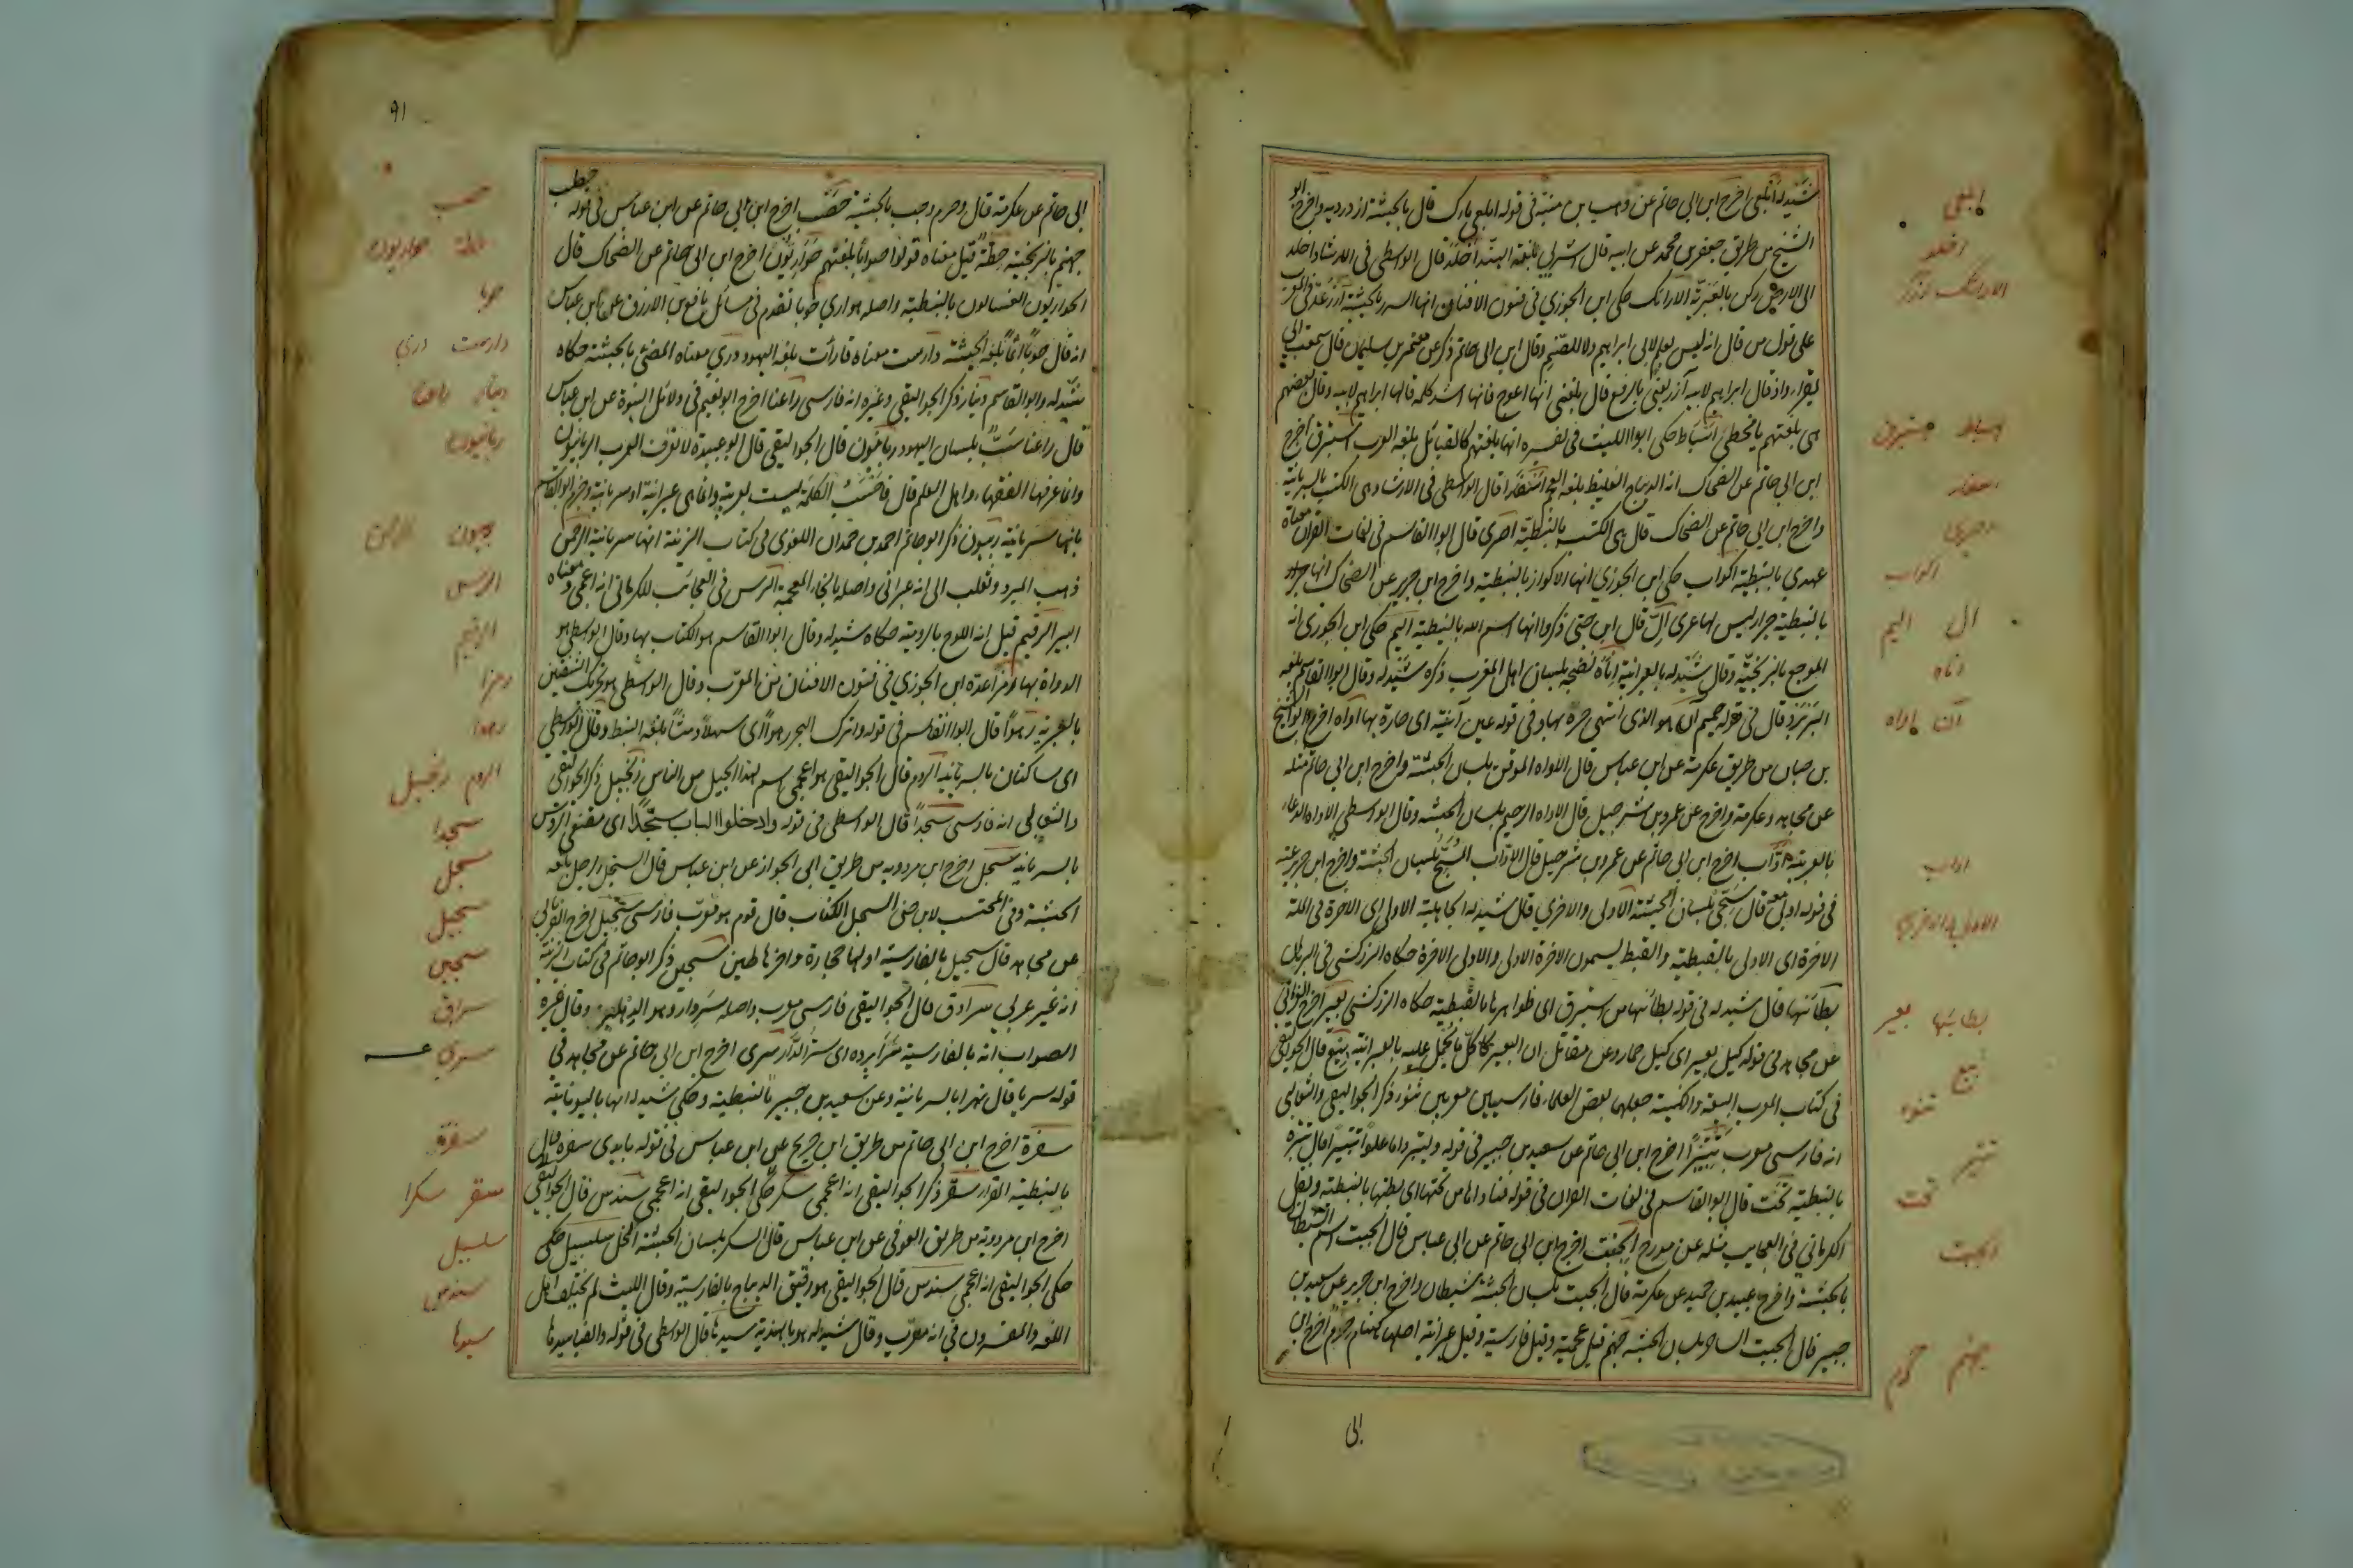 شيدله ابلعي اخرج ابن ابي حاتم عن وهب بن منبه في قوله ابلعي ماءك قال بالحبشة ازدرديه واخرج ابو
الشيخ من طريق جعفر بن محمد عن ابيه قال اشربي بلغة الهند اخلد قال الواسطي في الارشاد اخلد
الى الارض ركن بالعبرية الارائك حكى ابن الجوزي في فنون الافنان انها السرر بالحبشية آزر عد في المعرب
على قول من قال انه ليس بعلم لابي ابراهيم ولا للصنم وقال ابن ابي حاتم ذكر عن معتمر بن سليمان قال سمعت ابي
يقراء واذ قال ابراهيم لابيه آزر يعني بالرفع قال بلغني انها اعوج فانها اشد كلمة قالها ابراهيم لابيه وقال بعضهم
هي بلغتهم يا مخطي اسباط حكى ابو الليث في تفسيره انها بلغتهم كالقبائل بلغة العرب استبرق اخرج
ابن ابي حاتم عن الضحاك انه الديباج الغليظ بلغة العجم اسفارا قال الواسطي في الارشاد هي الكتب بالسريانية
واخرج ابن ابي حاتم عن الضحاك قال هي الكتب بالنبطية اصري قال ابو القاسم في لغات القران معناه
عهدي بالنبطية اكواب حكى ابن الجوزي انها الاكواز بالنبطية واخرج ابن جرير عن الضحاك انها جرار
بالنبطية جرار ليس لها عرى ال قال ابن جني ذكروا انها اسم الله بالنبطية اليم حكى ابن الجوزي انه
الموجع بالزنجية وقال شيدله بالعبرانية اناه نضجه بلسان اهل المغرب ذكره شيدله وقال ابو القاسم بلغة
البربر وقال في قوله حميم آن هو الذي انتهى حره بها وفي قوله عين آنية اي حارة بها اواه اخرج ابو الشيخ
بن حبان من طريق عكرمة عن ابن عباس قال الاواه الموقن بلسان الحبشة واخرج ابن ابي حاتم مثله
عن مجاهد وعكرمة واخرج عن عمرو بن شرحبيل قال الاواه الرحيم بلسان الحبشة وقال الواسطي الاواه الدعاء
بالعبرية اواب اخرج ابن ابي حاتم عن عمرو بن شرحبيل قال الاواب المسبح بلسان الحبشة واخرج ابن جرير عنه
في قوله اوبي معه قال سبحي بلسان الحبشة الاولى والاخرى قال شيدله الجاهلية الاولى اي الاخرة في الملة
الاخرة اي الاولى بالقبطية والقبط يسمون الاخرة الاولى والاولى الاخرة حكاه الزركشي في البرهان
بطائنها قال شيدله في قوله بطائنها من استبرق اي ظواهرها بالقبطية حكاه الزركشي بعير اخرج الفريابي
عن مجاهد في قوله كيل بعير اي كيل حمار وعن مقاتل ان البعير كل ما يحمل عليه بالعبرانية بيع قال الجواليقي
في كتاب المعرب البيعة والكنيسة جعلهما بعض العلماء فارسيين معربين تنور ذكر الجواليقي والثعالبي
انه فارسي معرب تتبيرا اخرج ابن ابي حاتم عن سعيد بن جبير في قوله وليتبروا ما علوا تتبيرا قال تبره
بالنبطية تحت قال ابو القاسم في لغات القران في قوله فناداها من تحتها اي بطنها بالنبطية ونقل
الكرماني في العجايب مثله عن مورج الجبت اخرج ابن ابي حاتم عن ابن عباس قال الجبت اسم الشيطان
بالحبشة واخرج عبيد بن حميد عن عكرمة قال الجبت بلسان الحبشة شيطان واخرج ابن جرير عن سعيد بن
جبير قال الجبت الساحر بلسان الحبشة جهنم قيل عجمية وقيل فارسية وقيل عبرانية اصلها كهنام حرم اخرج ابن
ابي
ابلعي
اخلد
الارائك آزر
اسباط استبرق
اسفار
اصري
اكواب
ال اليم
اناه
آن اواه
اواب
الاولى والاخرى
بطائنها بعير
بيع
تنور
تتبير
تحت
الجبت
جهنم حرم
٩١
ابي حاتم عن عكرمة قال وحرم وجب بالحبشية حصب اخرج ابن ابي حاتم عن ابن عباس في قوله حطب
جهنم بالزنجية حطة قيل معناه قولوا صوابا بلغتهم حواريون اخرج ابن ابي حاتم عن الضحاك قال
الحواريون الغسالون بالنبطية واصله هواري حوبا تقدم في مسائل نافع بن الازرق عن ابن عباس
انه قال حوبا اثما بلغة الحبشة دارست معناه قارأت بلغة اليهود دري معناه المضئ بالحبشة حكاه
شيدله وابو القاسم دينار ذكر الجواليقي وغيره انه فارسي راعنا اخرج ابو نعيم في دلائل النبوة عن ابن عباس
قال راعنا سب بلسان اليهود ربانيون قال الجواليقي قال ابو عبيدة لا تعرف العرب الربانيون
وانما عرفها الفقهاء واهل العلم قال فاحسب الكلمة ليست بعربية وانما هي عبرانية او سريانية وجزم ابو القاسم
بانها سريانية ربيون ذكر ابو حاتم احمد بن حمدان اللغوي في كتاب الزينة انها سريانية الرحمن
ذهب المبرد وثعلب الى انه عبراني واصله بالخاء المعجمة الرس في العجائب للكرماني انه اعجمي ومعناه
البير الرقيم قيل انه اللوح بالرومية حكاه شيدله وقال ابو القاسم هو الكتاب بها وقال الواسطي هو
الدواة بها رمزا عده ابن الجوزي في فنون الافنان من المعرب وقال الواسطي هو تحريك الشفتين
بالعبرية رهوا قال ابو القاسم في قوله واترك البحر رهوا اي سهلا دمثا بلغة النبط وقال الواسطي
اي ساكنا بالسريانية الروم قال الجواليقي هو اعجمي اسم لهذا الجيل من الناس زنجبيل ذكر الجواليقي
والثعالبي انه فارسي سجدا قال الواسطي في قوله وادخلوا الباب سجدا اي مقنعي الرؤس
بالسريانية سجل اخرج ابن مردويه من طريق ابي الجوزاء عن ابن عباس قال السجل الرجل بلغة
الحبشة وفي المحتسب لابن جني السجل الكتاب قال قوم هو معرب فارسي سجيل اخرج الفريابي
عن مجاهد قال سجيل بالفارسية اولها حجارة واخرها طين سجين ذكر ابو حاتم في كتاب الزينة
انه غير عربي سرادق قال الجواليقي فارسي معرب واصله سردار وهو الدهليز وقال غيره
الصواب انه بالفارسية سرابرده اي ستر الدار سري اخرج ابن ابي حاتم عن مجاهد في
قوله سريا قال نهرا بالسريانية وعن سعيد بن جبير بالنبطية وحكى شيدله انها باليونانية
سفرة اخرج ابن ابي حاتم من طريق ابن جريج عن ابن عباس في قوله بايدي سفرة قال
بالنبطية القراء سقر ذكر الجواليقي انه اعجمي سكر حكى الجواليقي انه اعجمي سندس قال الجواليقي
اخرج ابن مردوية من طريق العوفي عن ابن عباس قال السكر بلسان الحبشة الخل سلسبيل حكى
حكى الجواليقي انه اعجمي سندس قال الجواليقي هو رقيق الديباج بالفارسية وقال الليث لم يختلف اهل
اللغة والمفسرون في انه معرب وقال شيدله هو بالهندية سيدها قال الواسطي في قوله والفيا سيدها
حصب
حطة حواريون
حوبا
دارست دري
دينار راعنا
ربانيون
ربيون الرحمن
الرس
الرقيم
رمزا
رهوا
الروم زنجبيل
سجدا
سجل
سجيل
سجين
سرادق
سري
سفرة
سقر سكرا
سلسبيل
سندس
سيدها